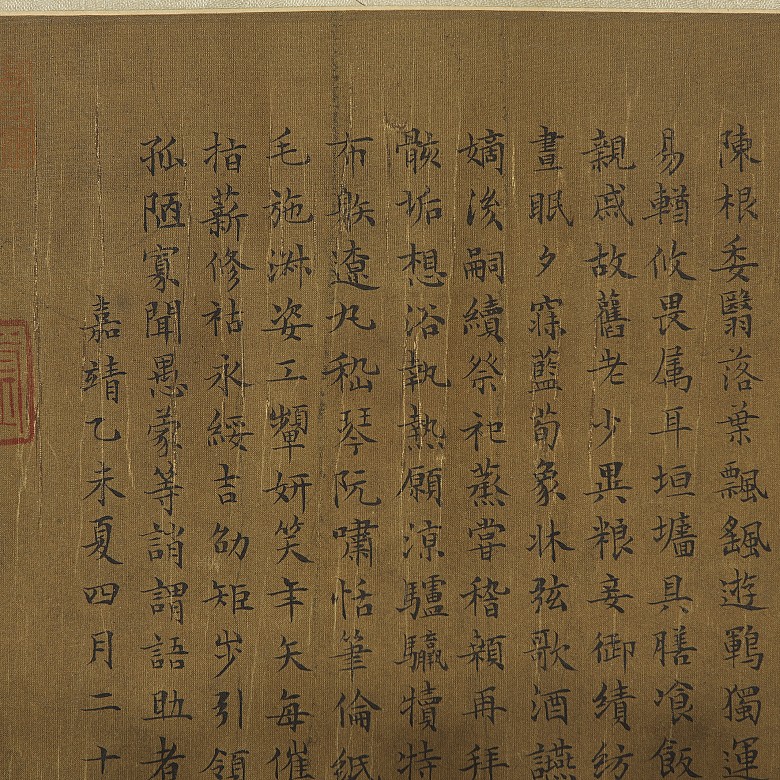 陳根委翳落葉飄颻遊鵾獨運
易輶攸畏属耳垣墻具膳飡飯
親戚故舊老少異粮妾御績紡
晝眠夕寐藍荀象牀弦歌酒讌
嫡後嗣續祭祀蒸嘗稽顙再拜
骸垢想浴執熱願涼驢騾犢特
布射遼丸嵇琴阮嘯恬筆倫紙
毛施淑姿工顰妍笑年矢每催
指薪修祜永綏吉劭矩步引領
孤陋寡聞愚蒙等誚謂語助者
嘉靖乙未夏四月二十